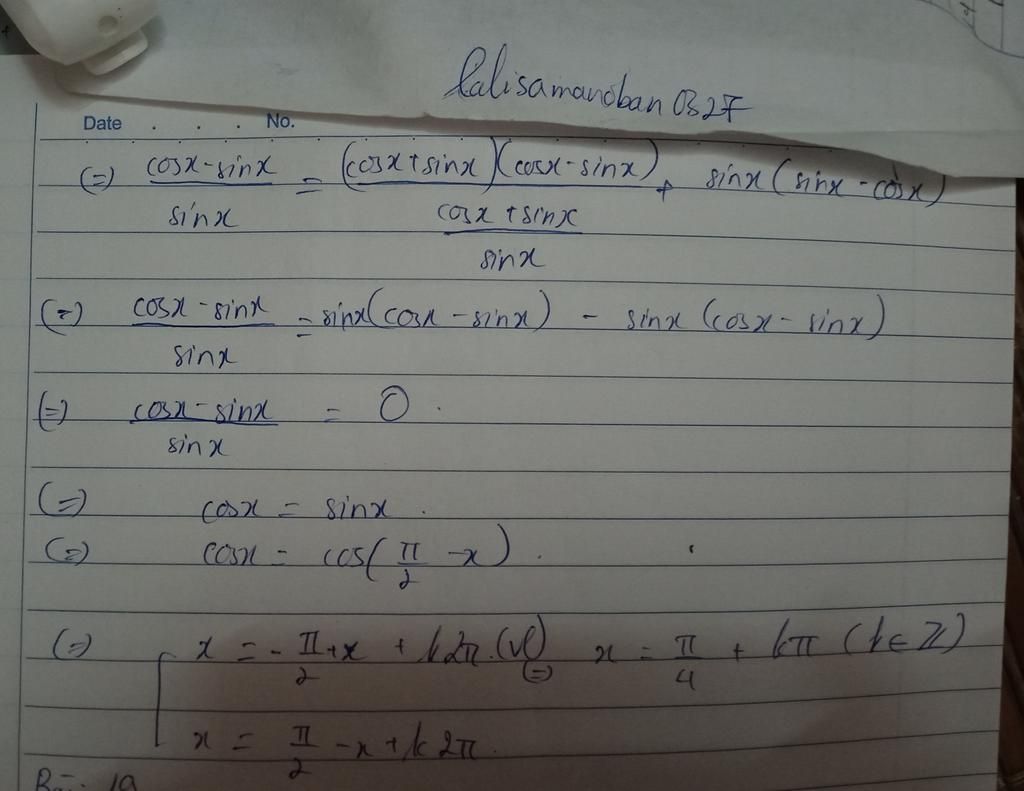 lalisamanoban 0327
Date . . . No.
(=) (cosx - sinx)/sinx = (cosx + sinx)(cosx - sinx)/((cosx + sinx)/sinx) + sinx(sinx - cosx)
(=) (cosx - sinx)/sinx = sinx(cosx - sinx) - sinx(cosx - sinx)
(=) (cosx - sinx)/sinx = 0.
(=) cosx = sinx.
(=) cosx = cos(π/2 - x).
(=) [ x = -π/2 + x + k2π.(vl) (=) x = π/4 + kπ (k∈Z)
x = π/2 - x + k2π.